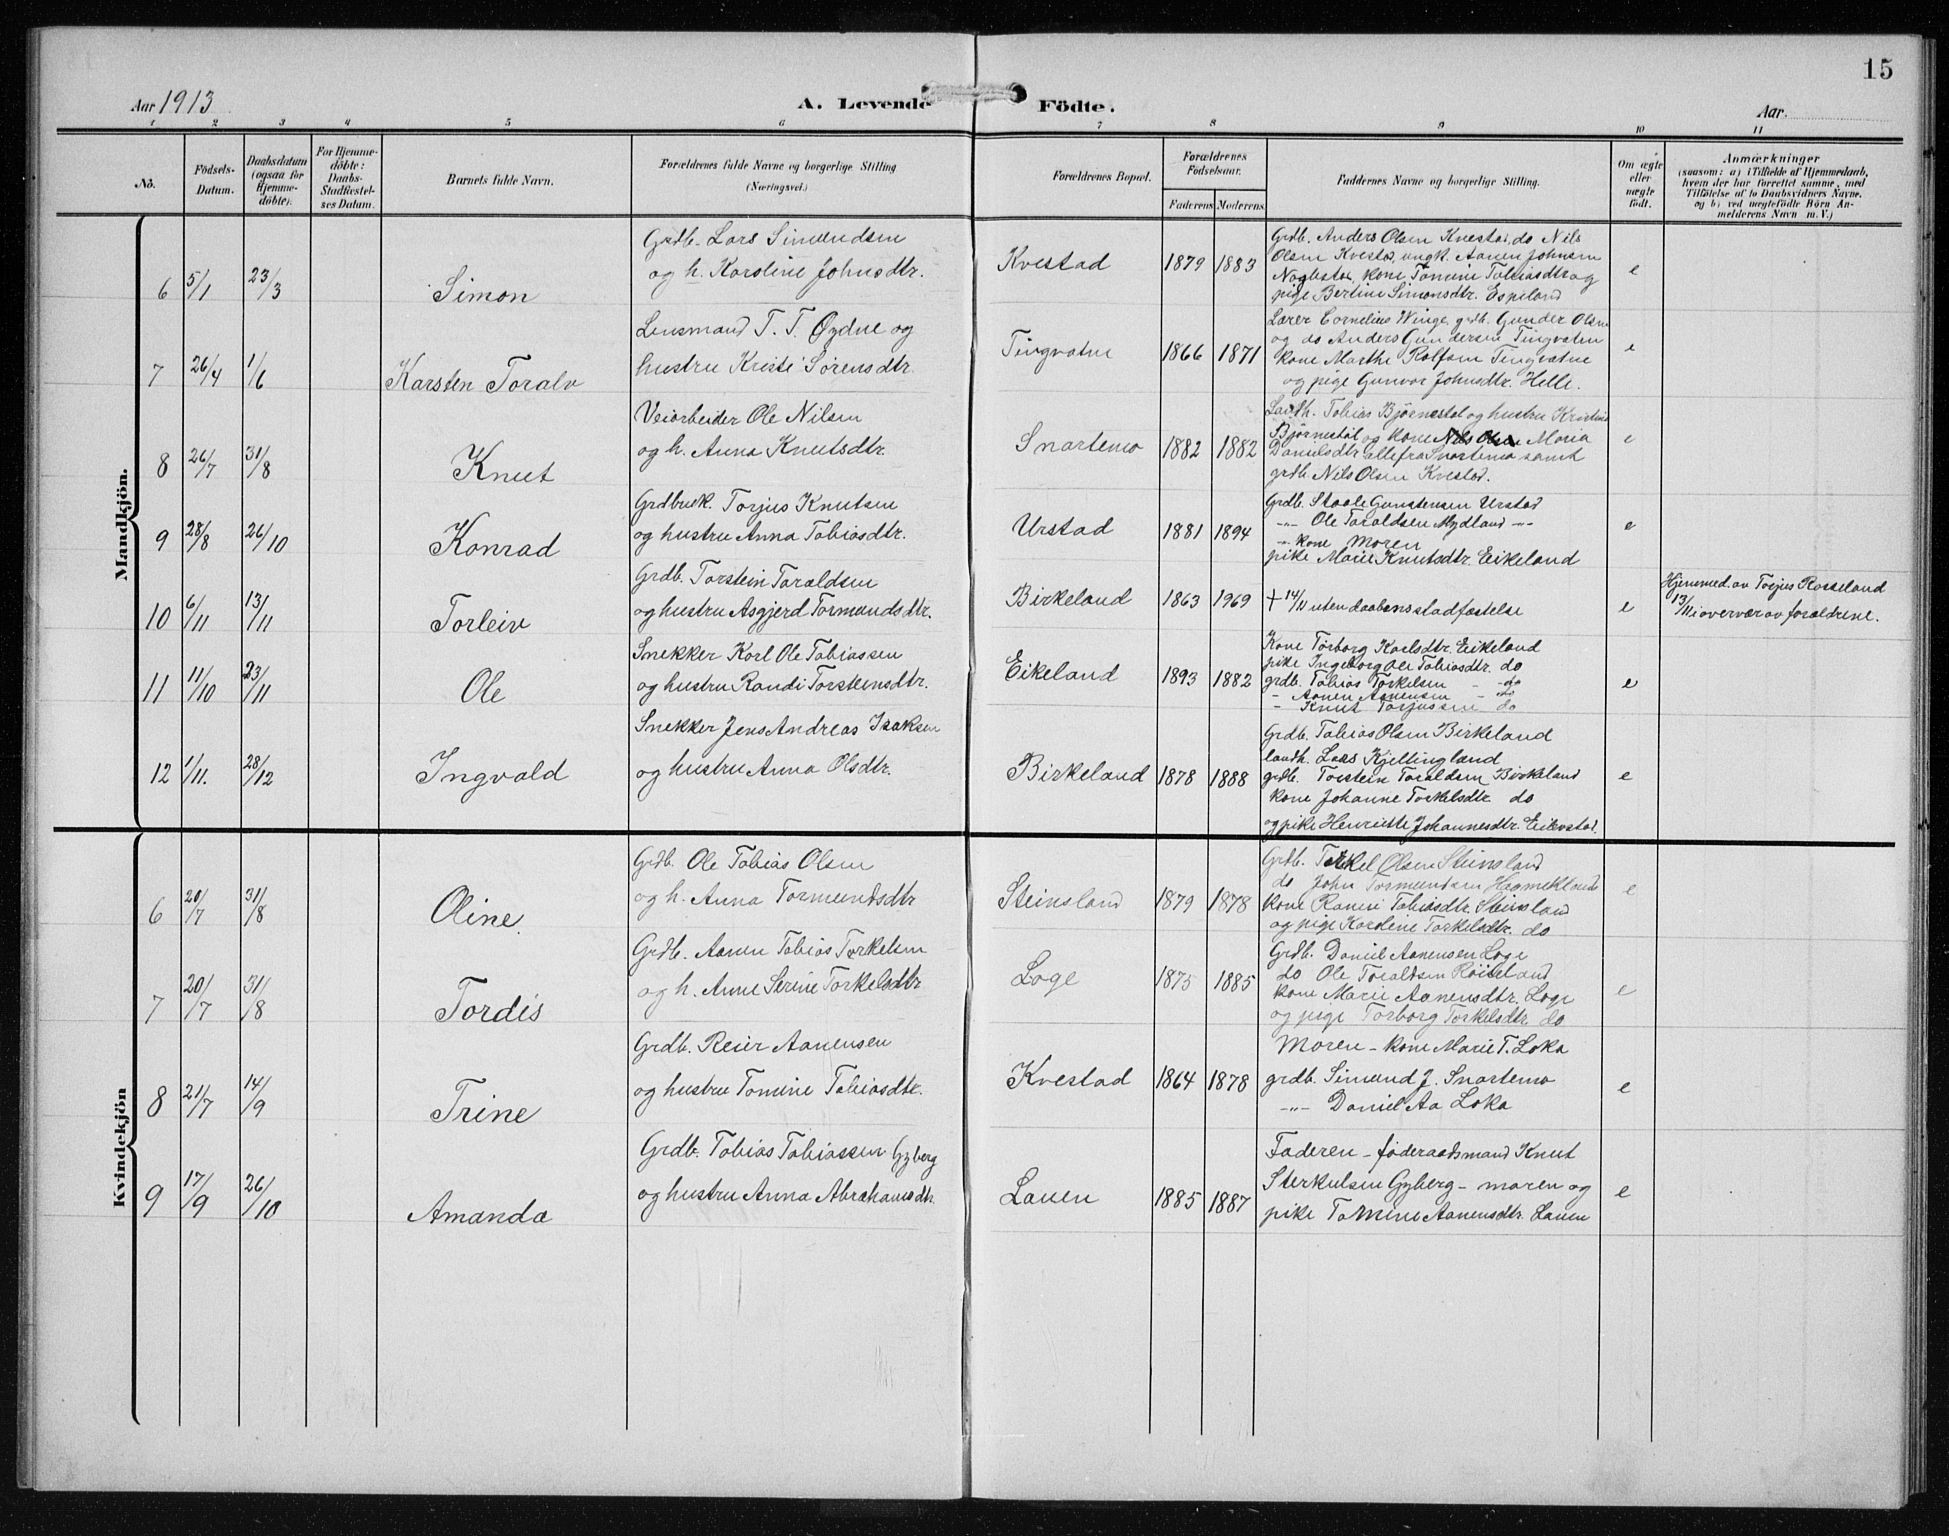 15
Aar 1913
A. Levende Födte.
Aar
1 2 3 4 5 6 7 8 9 10 11
No.
Födsels-Datum.
Daabsdatum (ogsaa for Hjemme-döbte).
For Hjemme-döbte: Daabs-Stadfæstel-ses Datum.
Barnets fulde Navn.
Forældrenes fulde Navne og borgerlige Stilling (Næringsvei.)
Forældrenes Bopæl.
Forældrenes Födselsaar.
Faderens Moderens
Faddernes Navne og borgerlige Stilling.
Om ægte eller uægte födt.
Anmærkninger
(saasom: a) i Tilfælde af Hjemmedaab,
hvem der har forrettet samme, med
Tilföielse af to Daabsvidners Navne.
og b) ved uægtefödte Börn An-
melderens Navn m. V.)
Mandkjön.
6 5/1 23/3 Simon
Grdb. Lars Simundsen
og h. Karoline Johnsdtr.
Kvestad 1879 1883
Grdb. Anders Olsen Kvestad, do Nils
Olsen Kvestad, ungk. Aanen Johnsen
kone Tomine Tobiasdtr og
pige Bertine Simonsdtr. Espeland
e
7 26/4 1/6 Karsten Toralv
Lensmand T. T. Øydne og
hustru Kristi Sørensdtr.
Tingvatne 1866 1871
Lærer Cornelius Winge, grdb. Gunder Olsen
og do Anders Gundersen Tingvatne
kone Marthe Rolfsen Tingvatne
og pige Gunvor Johnsdtr. Helle.
e
8 26/7 31/8 Knut
Veiarbeider Ole Nilsen
og h. Anna Knutsdtr.
Snartemo 1882 1882
Tobias Bjørnestøl og hustru Kristine
Bjørnestøl og kone Nils Olsen Maria
Danielsdtr alle fra Snartemo samt
grdb Nils Olsen Kvestad.
e
9 28/8 26/10 Konrad
Grdbruk. Torjus Knutsen
og hustru Anna Tobiasdtr.
Urstad 1881 1894
Grdb. Staale Gunstensen Urstad
-"- Ole Taraldsen Mydland -"-
-"- kone Moren
pike Marie Knutsdtr. Eikeland
e
10 6/11 13/11 Torleiv
Grdb. Torstein Taraldsen
og hustru Asgjerd Tormundsdtr.
Birkeland 1863 1969
+ 14/11 uten daabens stadfæstelse
e
Hjemmed. av Torjus Rosseland
13/11 i overvær av forældrene.
11 11/10 23/11 Ole
Snekker Karl Ole Tobiassen
og hustru Randi Torsteinsdtr.
Eikeland 1893 1882
Kone Torborg Karlsdtr. Eikeland
pike Ingeborg Ole Tobiasdtr. do
grdb. Tobias Torkelsen - do
- Aanen Aanensen - do
- Knut Torjussen do
e
12 1/11. 28/12 Ingvald
Snekker Jens Andreas Isaksen
og hustru Anna Olsdtr.
Birkeland 1878 1888
Grdb. Tobias Olsen Birkeland
landh. Lars Kjellingland
grdb. Torstein Taraldsen Birkeland
kone Johanne Torkelsdtr. do
og pike Henriette Johannesdtr. Eilevstad.
e
Kvindekjön
6 20/7 31/8 Oline.
Grdb. Ole Tobias Olsen
og h. Anna Tormundsdtr
Steinsland 1879 1878
Grdb. Torkel Olsen Steinsland
do John Tormundsen Hægmekland
kone Ranei Tobiasdtr. Steinsland
og pige Karoline Torkelsdtr. do
e
7 20/7 31/8 Tordis
Grdb. Aanen Tobias Torkelsen
og h. Anne Serine Torkelsdtr
Loge 1875 1885
Grdb. Daniel Aanensen Loge
do Ole Taraldsen Røiseland
kone Marie Aanensdtr. Loge
og pige Torborg Torkelsdtr. do
e
8 21/7 14/9 Trine
Grdb. Reier Aanensen
og hustru Tomine Tobiasdtr.
Kvestad 1864 1878
Moren - kone Marie T. Loka
grdb. Simund J. Snartemo
-"- Daniel Aa Loka
e
9 17/9 26/10 Amanda
Grdb. Tobias Tobiassen Gyberg
og hustru Anna Abrahamsdtr.
Lauen 1885 1887
Faderen - føderaadsmand Knut
Sterkulsen Gyberg - moren og
pike Tomine Aanensdtr. Lauen
e